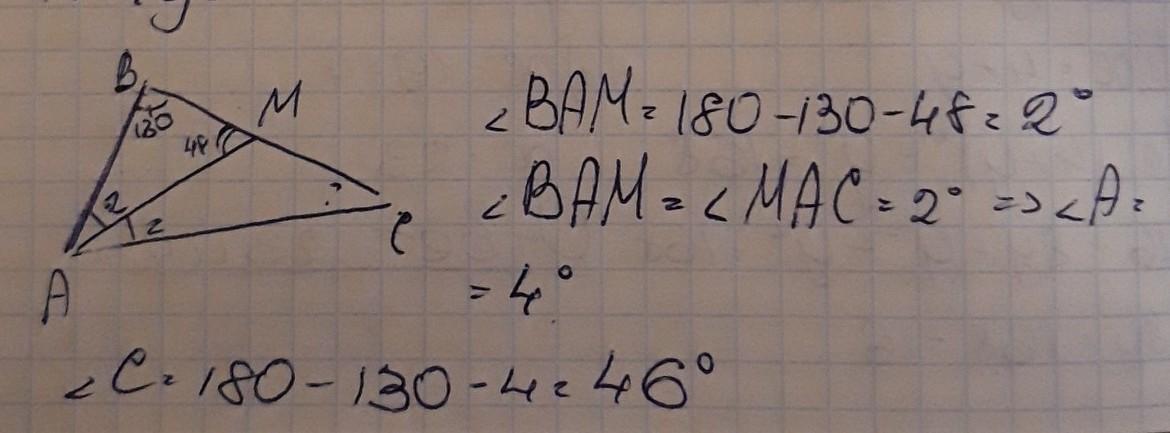 B
M
130
48
2
2
?
C
A
∠BAM = 180 - 130 - 48 = 2°
∠BAM = ∠MAC = 2° => ∠A =
= 4°
∠C = 180 - 130 - 4 = 46°